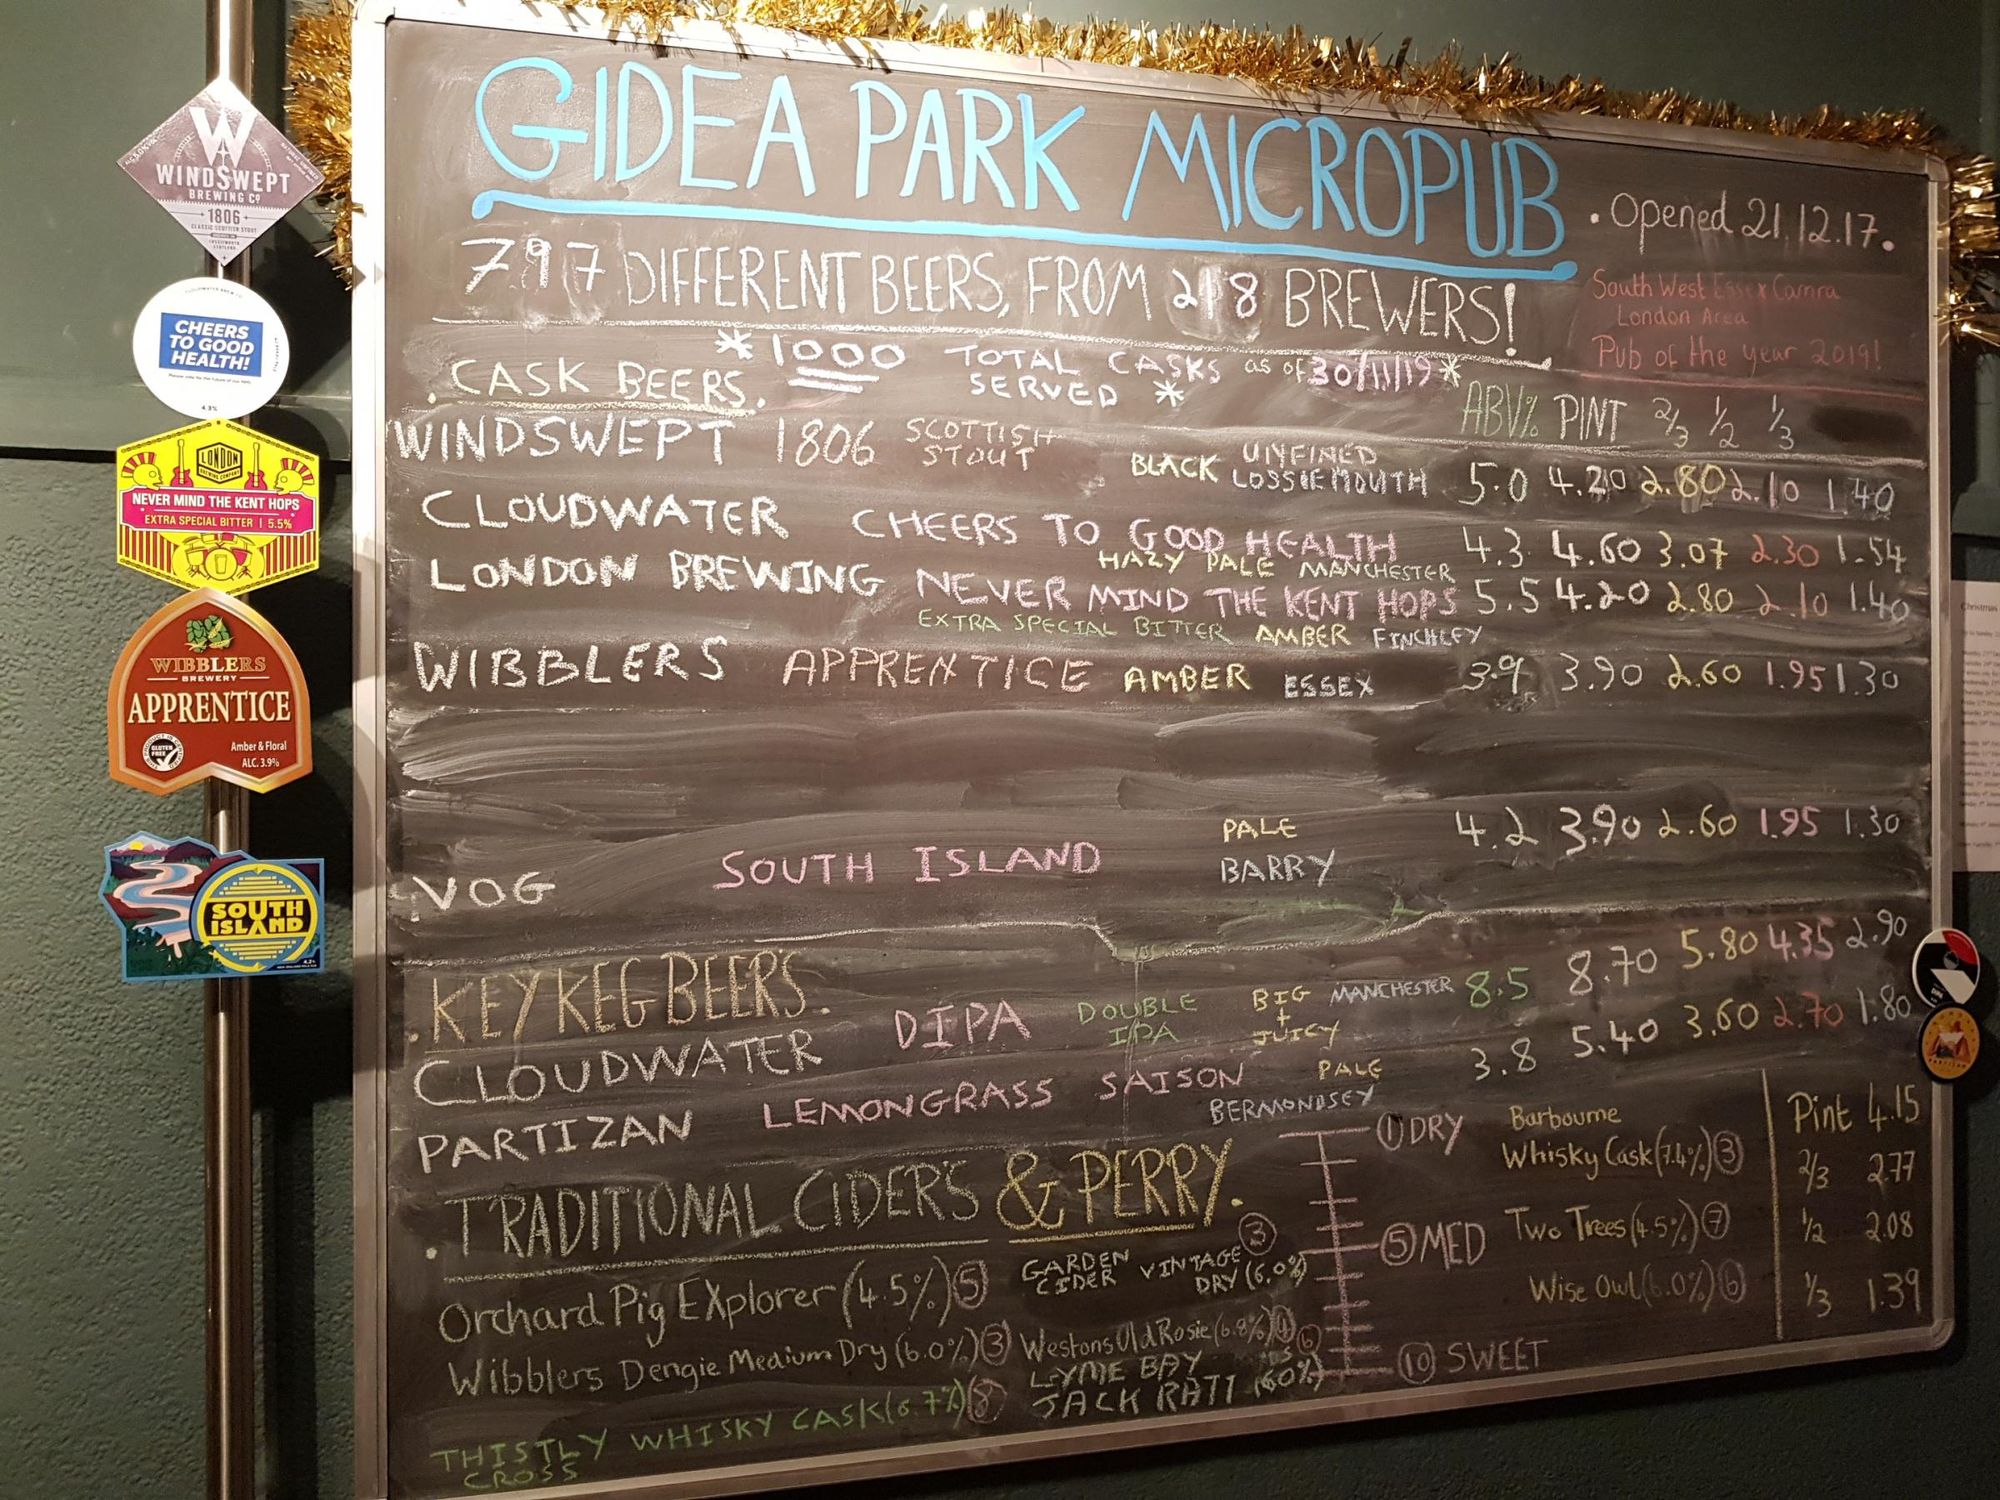 GIDEA PARK MICROPUB
. Opened 21.12.17.
797 DIFFERENT BEERS, FROM 218 BREWERS!
South West Essex Camra
London Area
Pub of the year 2019!
* 1000 TOTAL CASKS as of 30/11/19 *
SERVED *
. CASK BEERS.
ABV% PINT 2/3 1/2 1/3
WINDSWEPT 1806 SCOTTISH STOUT BLACK UNFINED LOSSIEMOUTH 5.0 4.20 2.80 2.10 1.40
CLOUDWATER CHEERS TO GOOD HEALTH 4.3 4.60 3.07 2.30 1.54
HAZY PALE MANCHESTER
LONDON BREWING NEVER MIND THE KENT HOPS 5.5 4.20 2.80 2.10 1.40
EXTRA SPECIAL BITTER AMBER FINCHLEY
WIBBLERS APPRENTICE AMBER ESSEX 3.9 3.90 2.60 1.95 1.30
VOG SOUTH ISLAND PALE BARRY 4.2 3.90 2.60 1.95 1.30
. KEYKEG BEER'S.
CLOUDWATER DIPA DOUBLE IPA BIG + JUICY MANCHESTER 8.5 8.70 5.80 4.35 2.90
PARTIZAN LEMONGRASS SAISON PALE BERMONDSEY 3.8 5.40 3.60 2.70 1.80
. TRADITIONAL CIDER'S & PERRY.
Orchard Pig Explorer (4.5%) 5
GARDEN CIDER VINTAGE DRY (6.0%) 3
Wibblers Dengie Medium Dry (6.0%) 3
Westons Old Rosie (6.8%)
LYME BAY
JACK RATT
THISTLY CROSS WHISKY CASK (6.7%) 8
1 DRY
5 MED
10 SWEET
Barbourne
Whisky Cask (7.4%) 3
Two Trees (4.5%) 7
Wise Owl (6.0%) 6
Pint 4.15
2/3 2.77
1/2 2.08
1/3 1.39
W
WINDSWEPT
BREWING CO
1806
CLASSIC SCOTTISH STOUT
CHEERS
TO GOOD
HEALTH!
4.3%
LONDON
BREWING COMPANY
NEVER MIND THE KENT HOPS
EXTRA SPECIAL BITTER | 5.5%
WIBBLERS
BREWERY
APPRENTICE
GLUTEN FREE
Amber & Floral
ALC. 3.9%
SOUTH
ISLAND
4.2%
PARTIZAN
Christmas